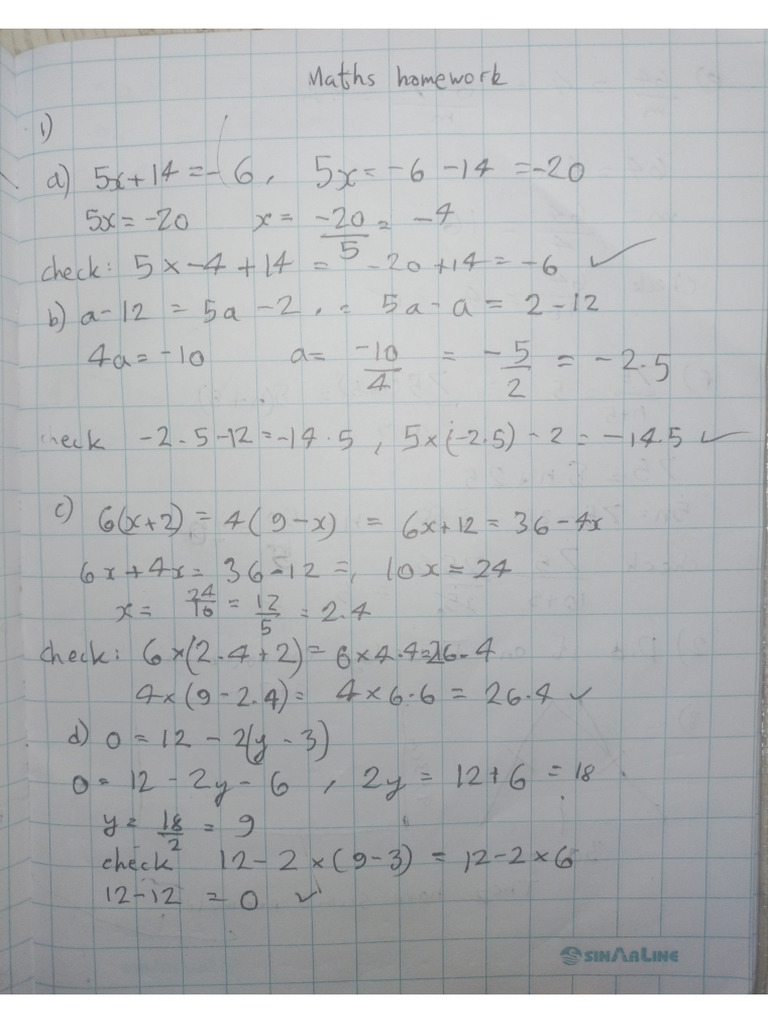 Maths homework
1)
a) 5x+14=-6, 5x=-6-14=-20
5x=-20 x= -20/5 = -4
check: 5x-4+14= -20+14=-6 ✓
b) a-12=5a-2, = 5a-a=2-12
4a=-10 a= -10/4 = -5/2 = -2.5
check -2.5-12=-14.5, 5x(-2.5)-2=-14.5 ✓
c) 6(x+2)=4(9-x) = 6x+12=36-4x
6x+4x=36-12=, 10x=24
x= 24/10 = 12/5 = 2.4
check: 6x(2.4+2)=6x4.4=26.4
4x(9-2.4)= 4x6.6=26.4 ✓
d) 0=12-2(y-3)
0=12-2y-6, 2y=12+6=18
y= 18/2 = 9
check 12-2x(9-3)=12-2x6
12-12=0 ✓
SINARLINE